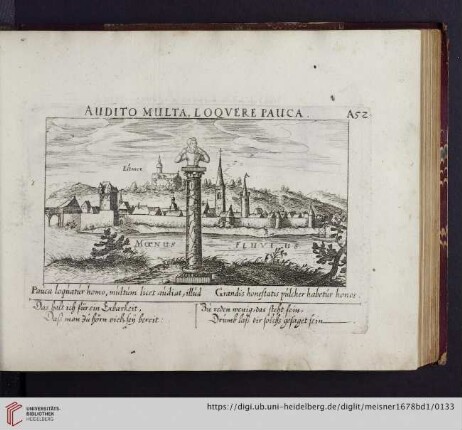 AUDITO MULTA, LOQVERE PAUCA.
A52
MOENUS FLUVIUS
Pauca loquatur homo, multum licet audiat, illud
Grandis honestatis pulcher habetur honos.
Das halt ich für ein Erbarkeit,
Daß man zu hörn viel sey bereit:
Zu reden wenig, das steht fein,
Drumb laß dir solchs gesaget sein
UNIVERSITÄTS-
BIBLIOTHEK
HEIDELBERG
https://digi.ub.uni-heidelberg.de/diglit/meisner1678bd1/0133